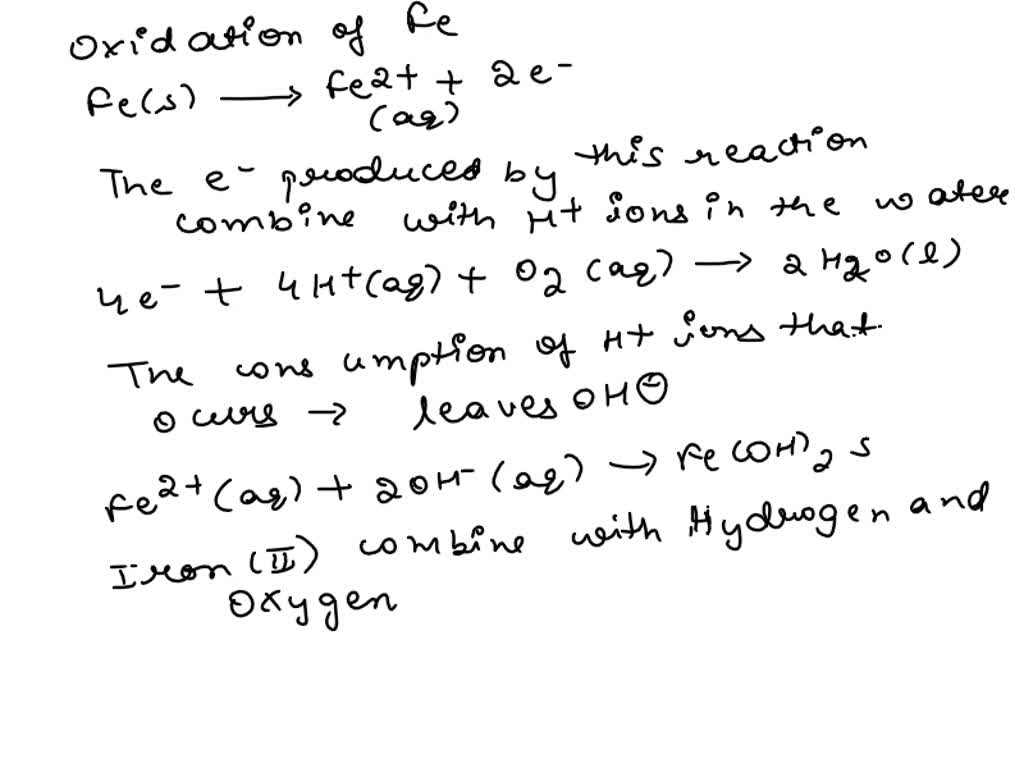 Oxidation of Fe
Fe(s) → Fe2+ + 2e-
(aq)
The e- produced by this reaction
combine with H+ ions in the water
4e- + 4H+(aq) + O2 (aq) → 2H2O(l)
The consumption of H+ ions that
occurs → leaves OH⊖
Fe2+ (aq) + 2OH- (aq) → Fe(OH)2 s
Iron (II) combine with Hydrogen and
Oxygen